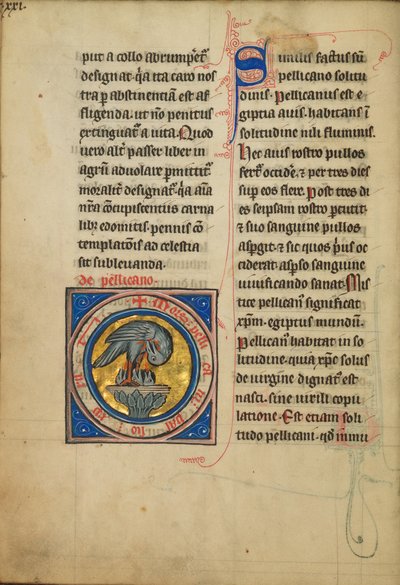 .xxi.
put a collo abrumpet᷑
designat. q̄a ita caro nos
tra p abstinentiam est af
fligenda. ut nō penitus
extinguat᷑ a uita. Quod
uero alt᷑ passer liber in
agrū aduolare pmittit᷑
moralit᷑ designat᷑. qa aīa
nr̄a cōcupiscentiis carna
lib; edomitis pennis cō
templatōis ad celestia
sit subleuanda.
de pellicano.
Similis factus sū
pellicano solitu
dinis. Pellicanus est e
giptia auis. habitans ī
solitudine nili fluminis.
Hec auis rostro pullos
fert᷑ occide᷑. ⁊ per tres dies
sup eos flere. Post tres di
es seipsam rostro pcutit.
⁊ suo sanguine pullos
aspgit. ⁊ sic quos p᷑us oc
ciderat. aspso sanguine
uiuificando sanat. Mis
tice pellican᷒ significat
xp̄m. egiptus mundū.
Pellican᷒ habitat in so
litudine. quia xp̄c solus
de uirgine dignat᷒ est
nasci. sine uirili copu
latione. Est etiam soli
tudo pellicani. qd̓ īmu